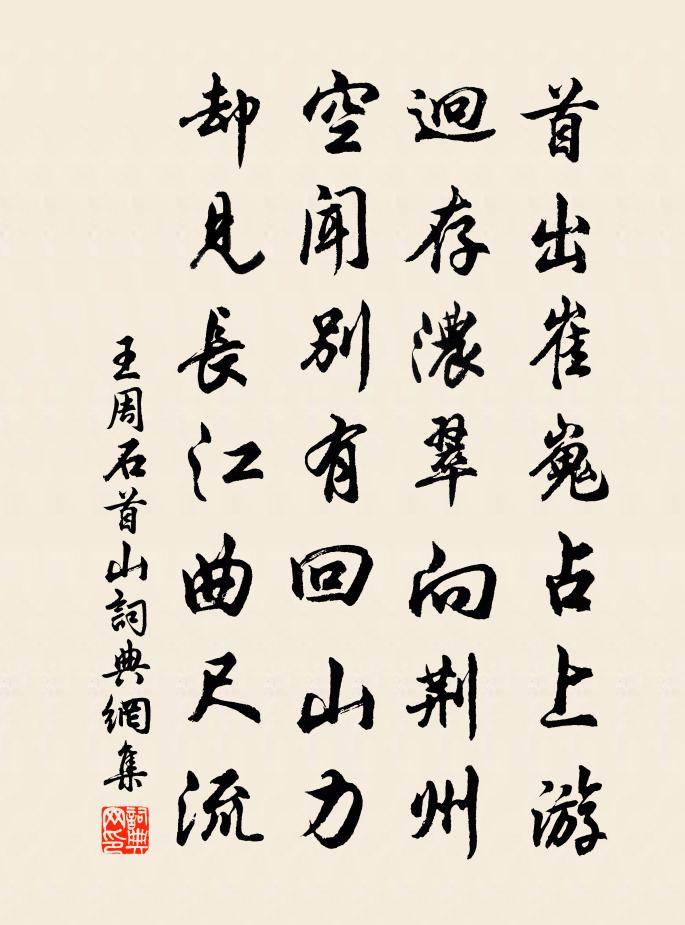 首出崔嵬占上游
迥存濃翠向荆州
空闻别有回山力
却見長江曲尺流
王周石首山詞典網集
詞典網印